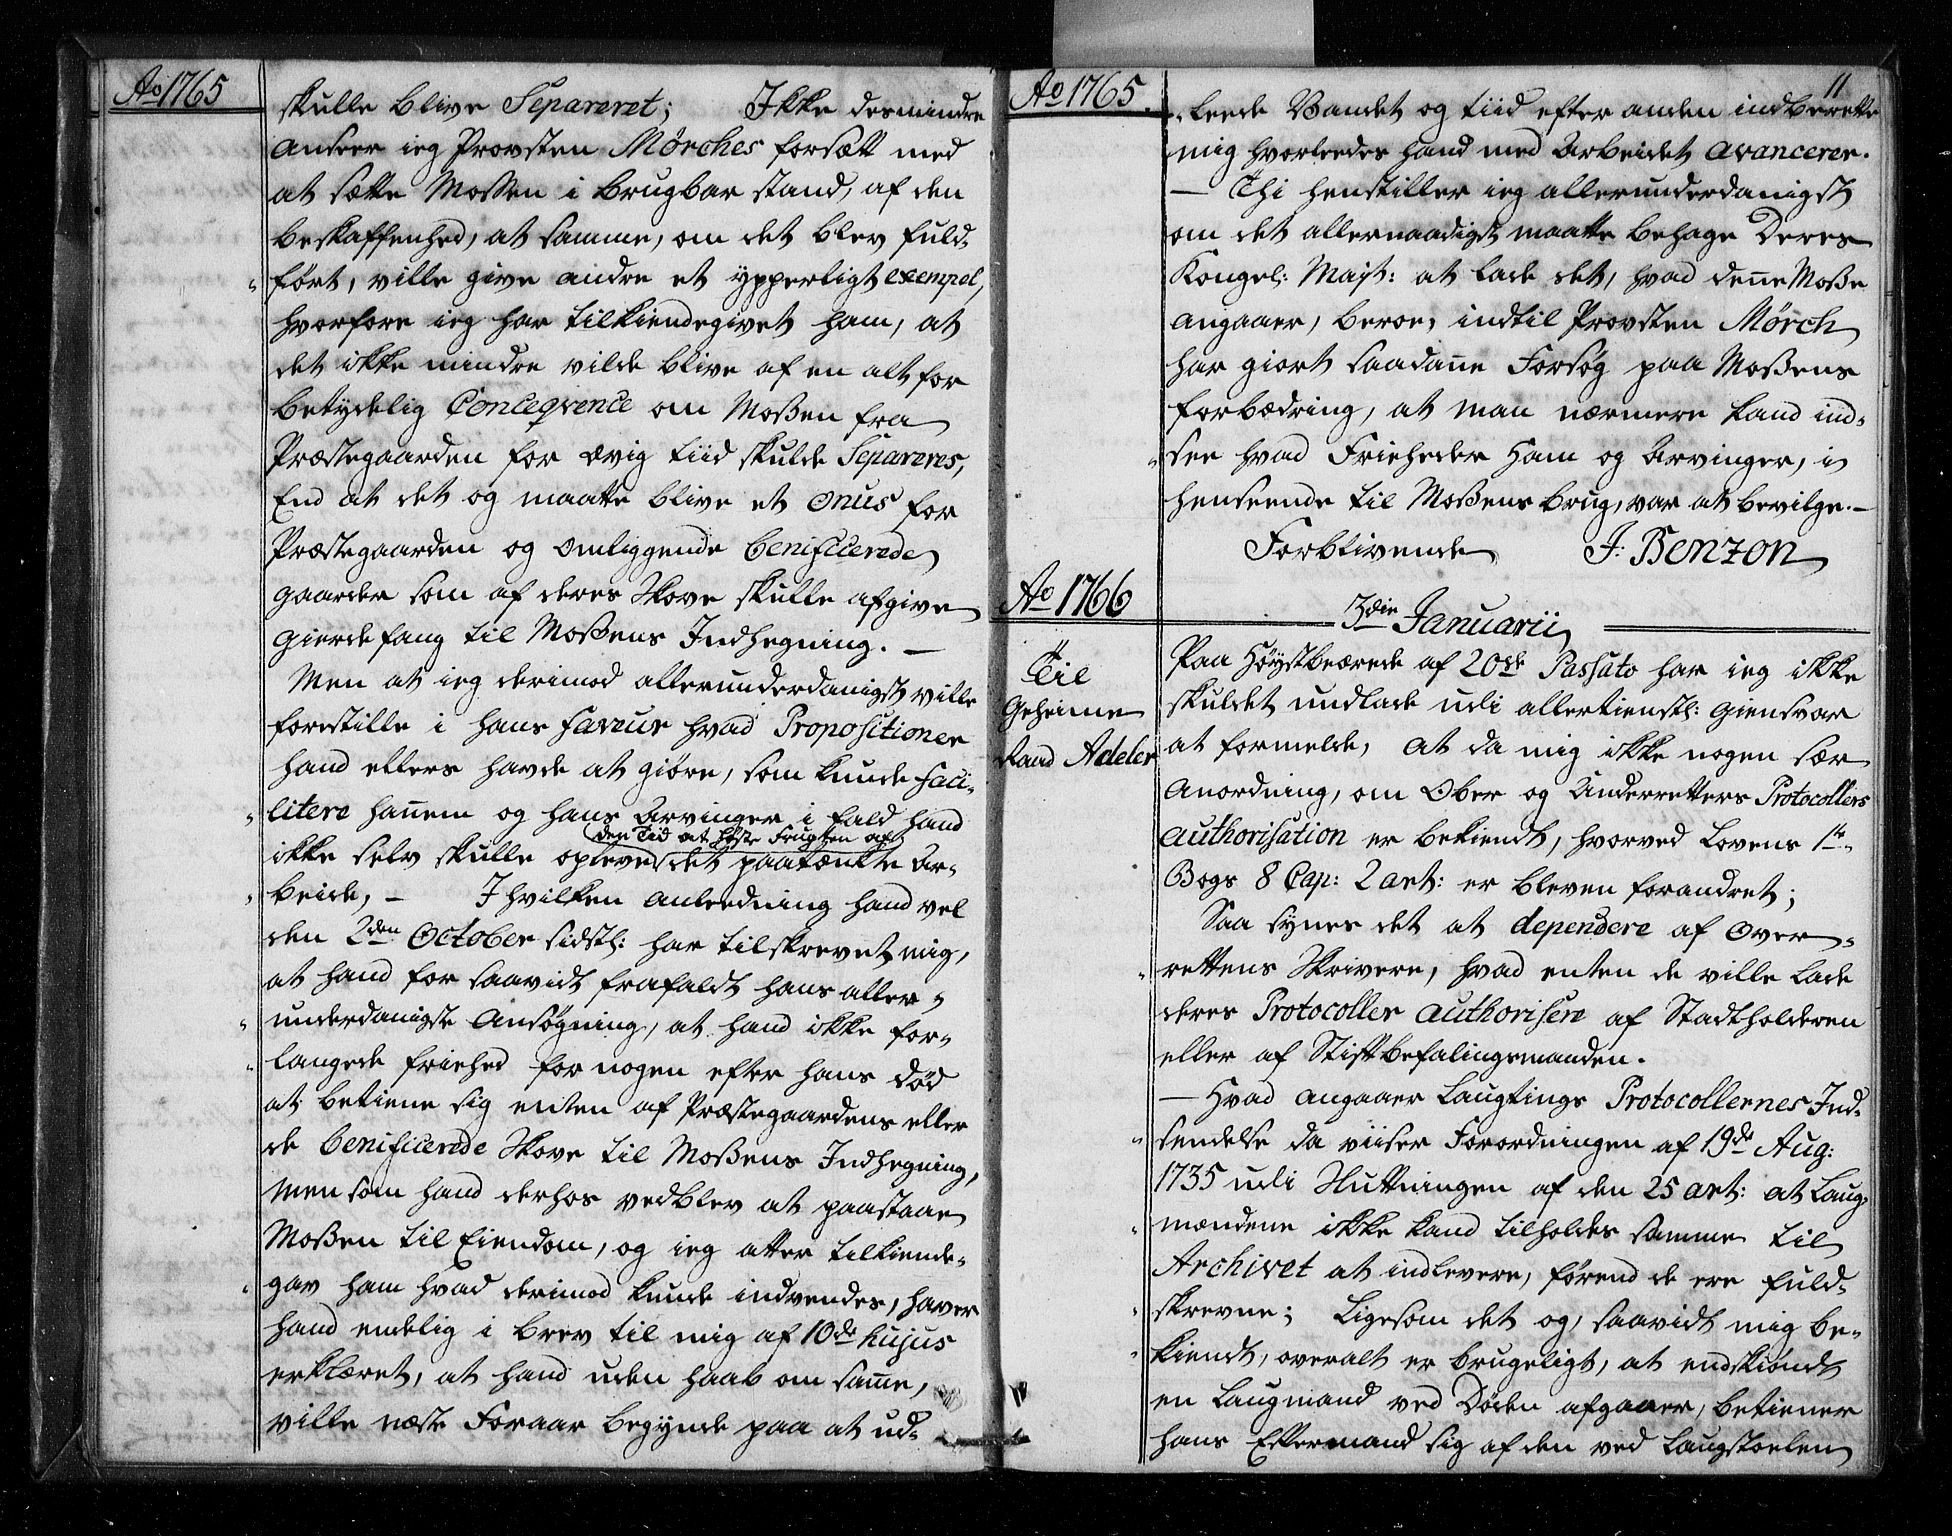 Ao 1765
skulle blive Separeret; Ikke desmindre
anseer ieg Provsten Mørches forsætt med
at sætte Mossen i brugbar stand, af den
beskaffenhed, at samme, om det blev fuld-
ført, ville give andre et ypperligt exempel,
hvorfore ieg har tilkiendegivet ham, at
det ikke mindre vilde blive af en alt for
betydelig Conceqvence om Mossen fra
Præstegaarden for ævig tiid skulde Separeres,
End at det og maatte blive et onus for
Præstegaarden og omliggende benificerede
gaarder som af deres Skove skulle afgive
gierdefang til Mossens Indhegning. —
Men at ieg derimod allerunderdanigst ville
forestille i hans faveur hvad Propositioner
hand ellers havde at giøre, som kunde faci-
litere hannem og hans Arvinger i fald hand
den Tid at høste Frugten af
ikke selv skulle opleve det paatænkte Ar-
beide, — I hvilken anleedning hand vel
den 2den October sidstl: har tilskrevet mig,
at hand for saavidt frafaldt hans aller-
underdanigste Ansøgning, at hand ikke for-
langede friehed for nogen efter hans død
at betiene sig enten af Præstegaardens eller
de benificerede Skove til Mossens Indhegning,
men som hand derhos vedblev at paastaae
Mossen til Eiendom, og ieg atter tilkiende-
gav ham hvad derimod kunde indvendes, haver
hand endelig i brev til mig af 10de hujus
erklæret, at hand uden haab om samme,
ville næste Foraar begynde paa at ud-
Ao 1765.
11
leede Vandet og tiid efter anden indberette
mig hvorleedes hand med Arbeidet avancerer.
— Thi henstiller ieg allerunderdanigst
om det allernaadigst maatte behage Deres
Kongel: Majt: at lade det, hvad denne Mosse
angaaer, beroe, indtil Provsten Mørch
har giort saadanne Forsøg paa Mossens
forbædring, at man nærmere kand ind-
see hvad Frieheder Ham og Arvinger, i
henseende til Mossens brug, var at bevilge. —
Forblivende J: Benzon
Ao 1766
3die Januarii
Til
Geheime
Raad Adeler
Paa Høystbeærede af 20de Passato har ieg ikke
skuldet undlade udi allertienstl: giensvar
at formelde, at da mig ikke nogen sær
Anordning, om Ober og Underretters Protocollers
authorisation er bekiendt, hvorved Lovens 1te
Bogs 8 Cap: 2 art: er bleven forandret;
Saa synes det at dependere af Over-
rettens Skrivere, hvad enten de ville lade
deres Protocoller authorisere af Stadtholderen
eller af Stiftbefalingsmanden.
— Hvad angaaer Laugtings Protocollernes Ind-
sendelse da viiser Forordningen af 19de Aug:
1735 udi Sluttningen af den 25 art: at Laug-
mændene ikke kand tilholdes samme til
Archivet at indlevere, førend de ere fuld-
skrevne; Ligesom det og, saavidt mig be-
kiendt, overalt er brugeligt, at endskiøndt
en Laugmand ved Døden afgaaer, betiener
hans Eftermand sig af den ved Laugstoelen